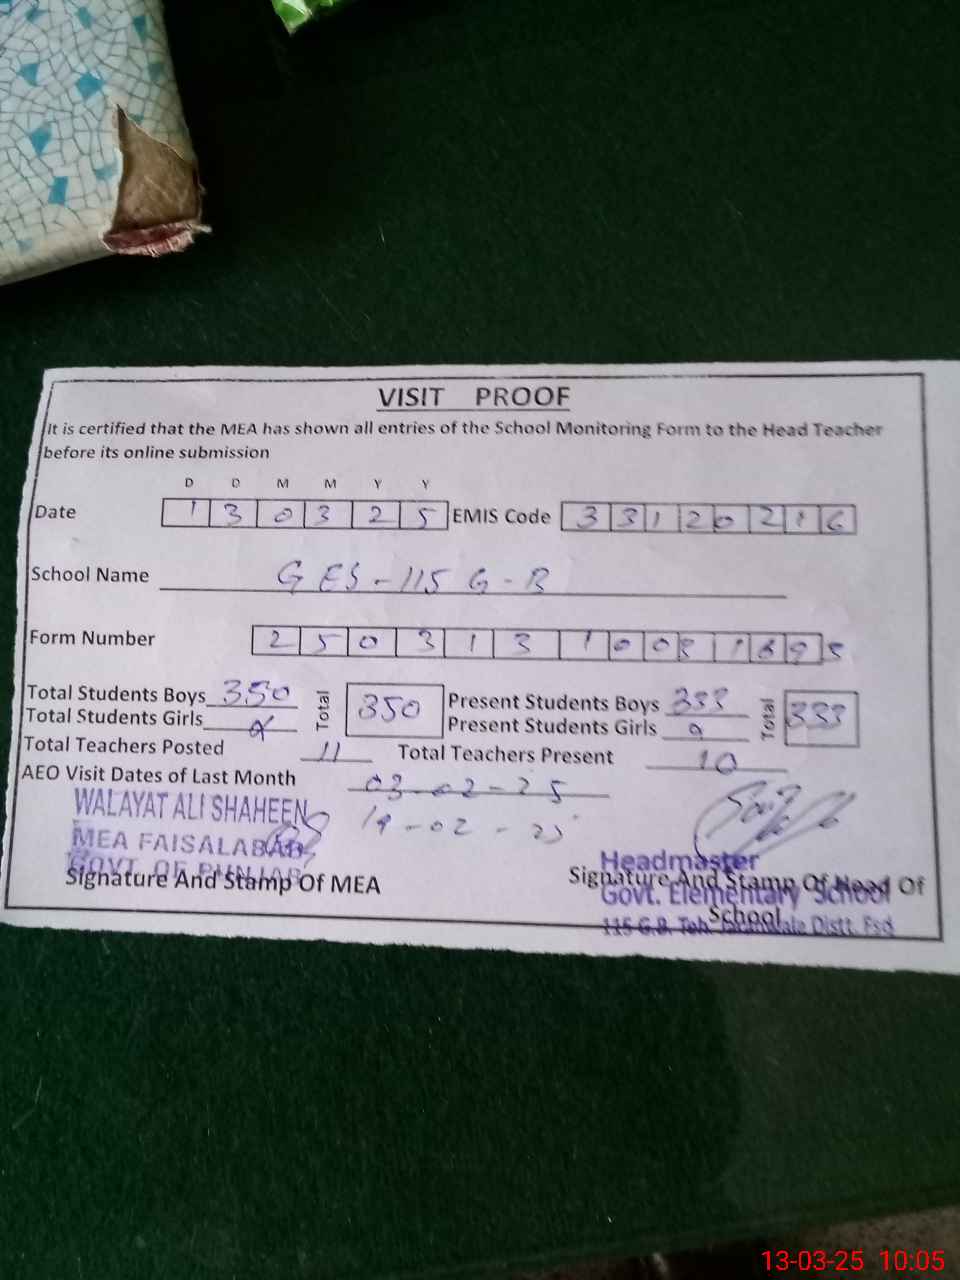 VISIT PROOF
It is certified that the MEA has shown all entries of the School Monitoring Form to the Head Teacher
before its online submission
D D M M Y Y
Date 1 3 0 3 2 5 EMIS Code 3 3 1 2 0 2 1 6
School Name GES-115 G-B
Form Number 2 5 0 3 1 3 1 0 0
Total Students Boys 350 Total 350 Present Students Boys 333 Total 333
Total Students Girls Present Students Girls
Total Teachers Posted 11 Total Teachers Present 10
AEO Visit Dates of Last Month 03-02-25
19-02-25
WALAYAT ALI SHAHEEN
MEA FAISALABAD
GOVT. OF PUNJAB
Signature And Stamp Of MEA
Headmaster
Signature And Stamp Of Head Of
Govt. Elementary School
School
115 G.B. Teh. Jaranwala Distt. Fsd
13-03-25 10:05